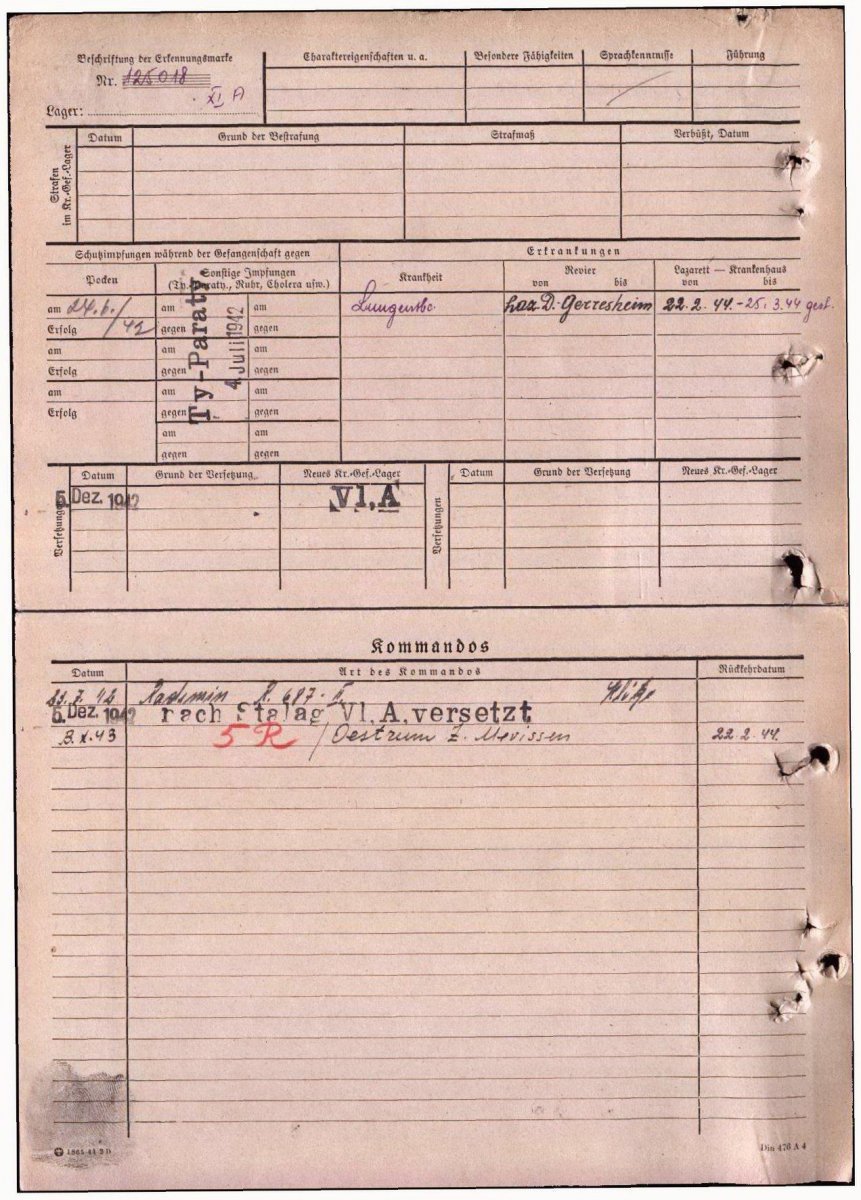 Beschriftung der Erkennungsmarke
Nr. 125018
Lager: XI A
Charaktereigenschaften u. a.
Besondere Fähigkeiten
Sprachkenntnisse
Führung
Strafen im Kr.-Gef.-Lager
Datum
Grund der Bestrafung
Strafmaß
Verbüßt, Datum
Schutzimpfungen während der Gefangenschaft gegen
Erkrankungen
Pocken
Sonstige Impfungen
(Ty.-Paraty., Ruhr, Cholera usw.)
Krankheit
Revier
von bis
Lazarett — Krankenhaus
von bis
am 24.6./ am am
Erfolg 42 gegen gegen
Ty-Paraty.
4. Juli 1942
Lungentbc. Laz D.-Gerresheim 22.2.44.-25.3.44 gest.
am am am
Erfolg gegen gegen
am am am
Erfolg gegen gegen
am am
gegen gegen
Versetzungen
Datum
Grund der Versetzung
Neues Kr.-Gef.-Lager
Versetzungen
Datum
Grund der Versetzung
Neues Kr.-Gef.-Lager
5. Dez. 1942 VI, A
Kommandos
Datum
Art des Kommandos
Rückkehrdatum
7. 42 R. 687
5. Dez. 1942 nach Stalag VI, A, versetzt
43 5 R / Oestrum Z. Mevissen 22.2.44.
1865 41 2 D
Din 476 A 4